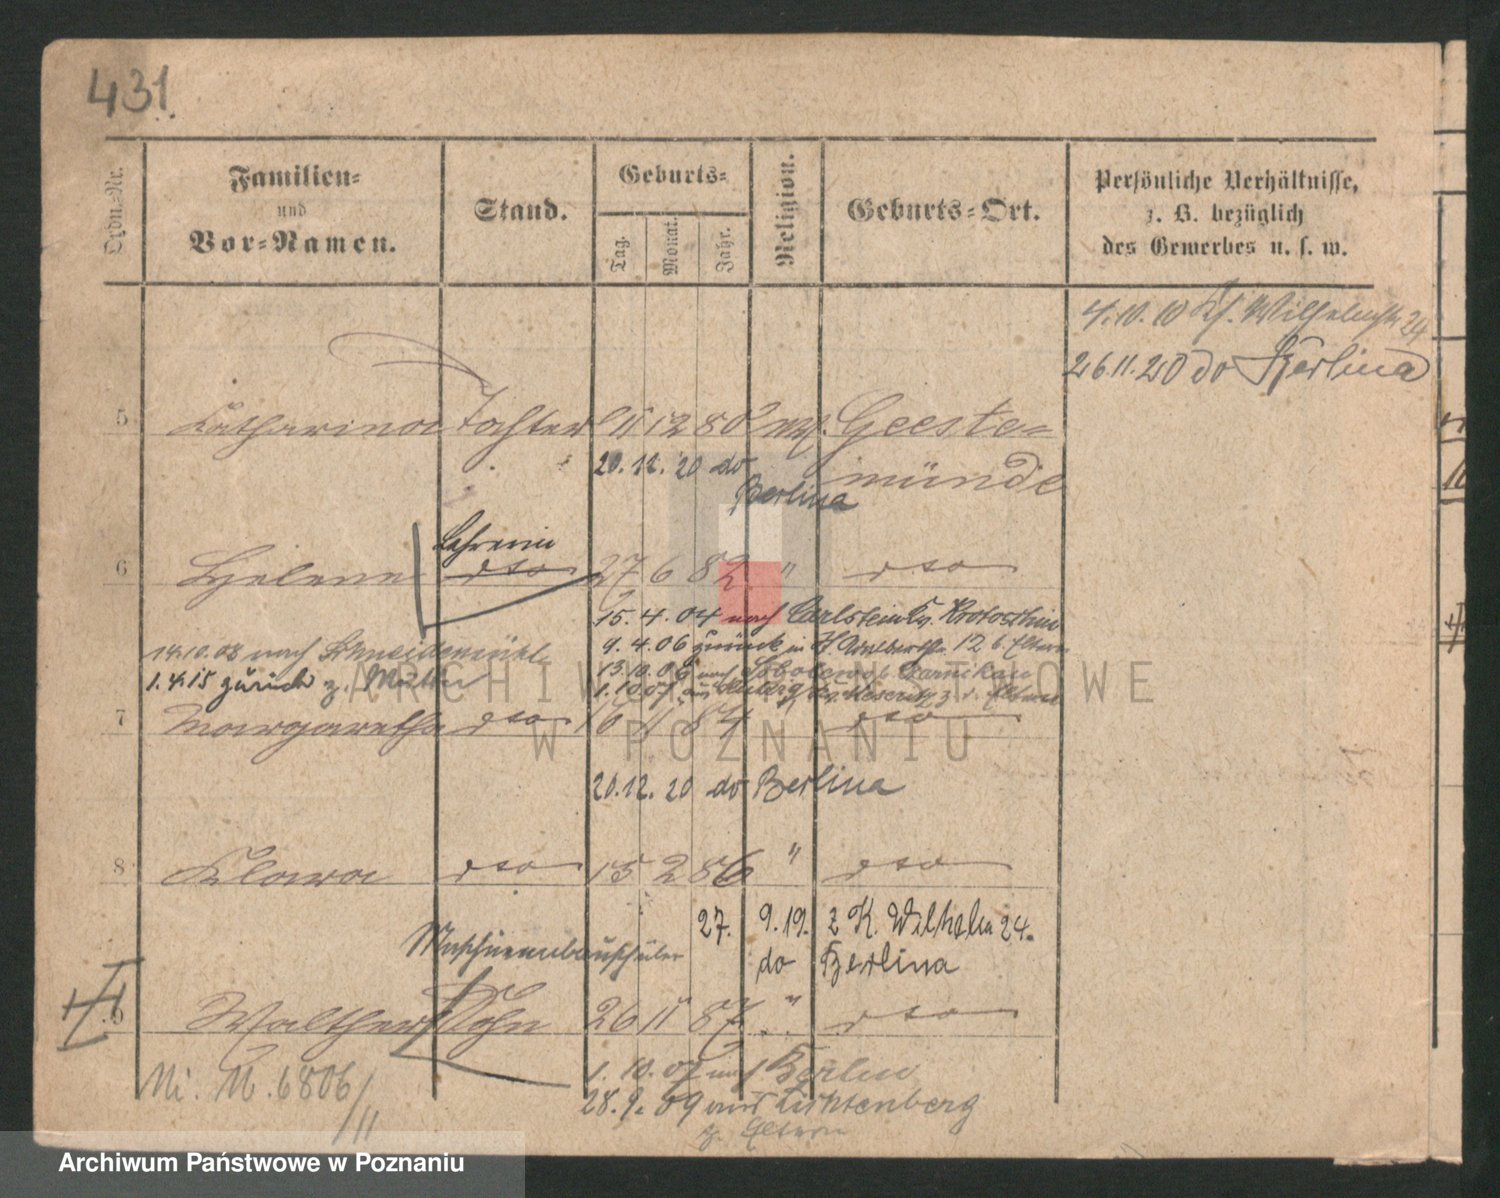 431
Ordn.-Nr.
Familien-
und
Vor-Namen.
Stand.
Geburts-
Tag.
Monat.
Jahr.
Religion.
Geburts-Ort.
Persönliche Verhältnisse,
z. B. bezüglich
des Gewerbes u. s. w.
4.10.10 Wilhelmstr 24
26.11.20 do Berlina
5 Katharina Tochter 11 12 80 Geeste-
münde
20.12.20 do
Berlina
Lehrerin
6 Helene dto 27 6 82 " dto
15.4.04 nach Carlstein Kr. Krotoschin
9.4.06 zurück in 12 b. Eltern
14.10.08 nach Schneidemühl
13.10.06 nach
1.4.15 zurück z. Mutter
1.10.07 aus Kr. Meseritz z. d. Eltern
7 Margarethe dto 16 11 84 dto
20.12.20 do Berlina
8 Klara dto 15 2 86 " dto
27. 9.19. z K. Wilhelm 24.
Maschinenbauschüler
do Berlina
9 Walther Sohn 26 11 87 " dto
1.10.07 nach Berlin
Mi. M. 6806/11
28.9.09 aus Lichtenberg
z. Eltern
ARCHIWUM PAŃSTWOWE
W POZNANIU
Archiwum Państwowe w Poznaniu